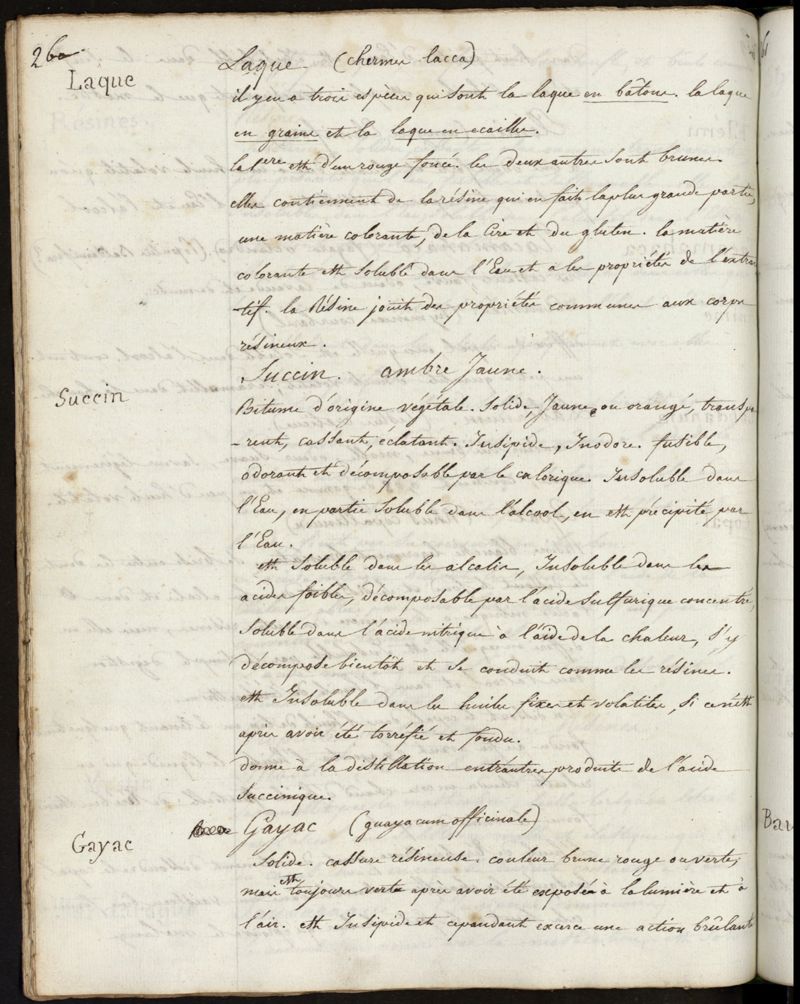 260
Laque
Laque (chermes lacca)
il y en a trois espèces qui sont la laque en bâtons. la laque
en graine et la laque en ecailles.
la 1ere est d'un rouge foncé. les deux autres sont brunes.
elles contiennent de la résine qui en fait la plus grande partie,
une matière colorante, de la Cire et du gluten. la matière
colorante est soluble dans l'Eau et a les propriétés de l'extrac
tif. la Résine jouit des propriétés communes aux corps
résineux.
Succin
Succin. ambre Jaune.
Bitume d'origine végétale. solide, Jaune, ou orangé, transpa
-rent, cassant, éclatant. Insipide, Inodore. fusible,
odorant et décomposable par le calorique. Insoluble dans
l'Eau, en partie soluble dans l'alcool, en est précipité par
l'Eau.
est soluble dans les alcalis, Insoluble dans les
acides foibles, décomposable par l'acide sulfurique concentré,
soluble dans l'acide nitrique à l'aide de la chaleur, s'y
décompose bientôt et se conduit comme les résines.
est Insoluble dans les huiles fixes et volatiles, si ce n'est
après avoir été torréfié et fondu.
donne à la distillation entr'autres produits de l'acide
Succinique.
Gayac
Gayac (guayacum officinale)
Solide. cassure résineuse. couleur brune rouge ou verte,
mais est toujours verte après avoir été exposée à la lumière et à
l'air. est Insipide et cependant exerce une action brûlante